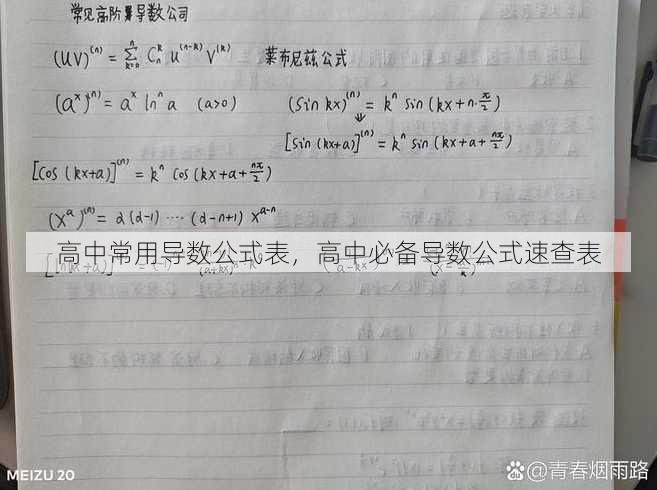 常见高阶导数公司
(uv)⁽ⁿ⁾ = Σₖ₌₀ⁿ Cₙᵏ u⁽ⁿ⁻ᵏ⁾ v⁽ᵏ⁾ 莱布尼兹公式
(aˣ)⁽ⁿ⁾ = aˣ lnⁿ a (a>0) (sin kx)⁽ⁿ⁾ = kⁿ sin (kx+n·π/2)
[sin (kx+a)]⁽ⁿ⁾ = kⁿ sin (kx+a+nπ/2)
[cos (kx+a)]⁽ⁿ⁾ = kⁿ cos (kx+a+nπ/2)
(xᵃ)⁽ⁿ⁾ = α(α-1) ···· (α-n+1) xᵅ⁻ⁿ
高中常用导数公式表，高中必备导数公式速查表
MEIZU 20
Bai百度@青春烟雨路